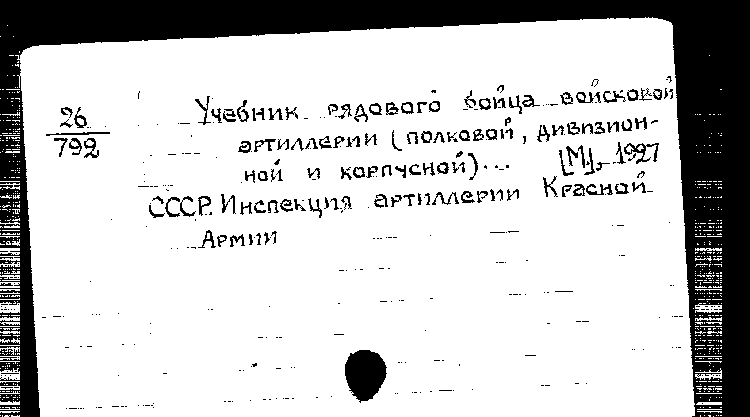 26
792
Учебник рядового бойца войсковой
артиллерии (полковой, дивизион-
ной и корпусной)... [М], 1927
СССР. Инспекция артиллерии Красной
Армии